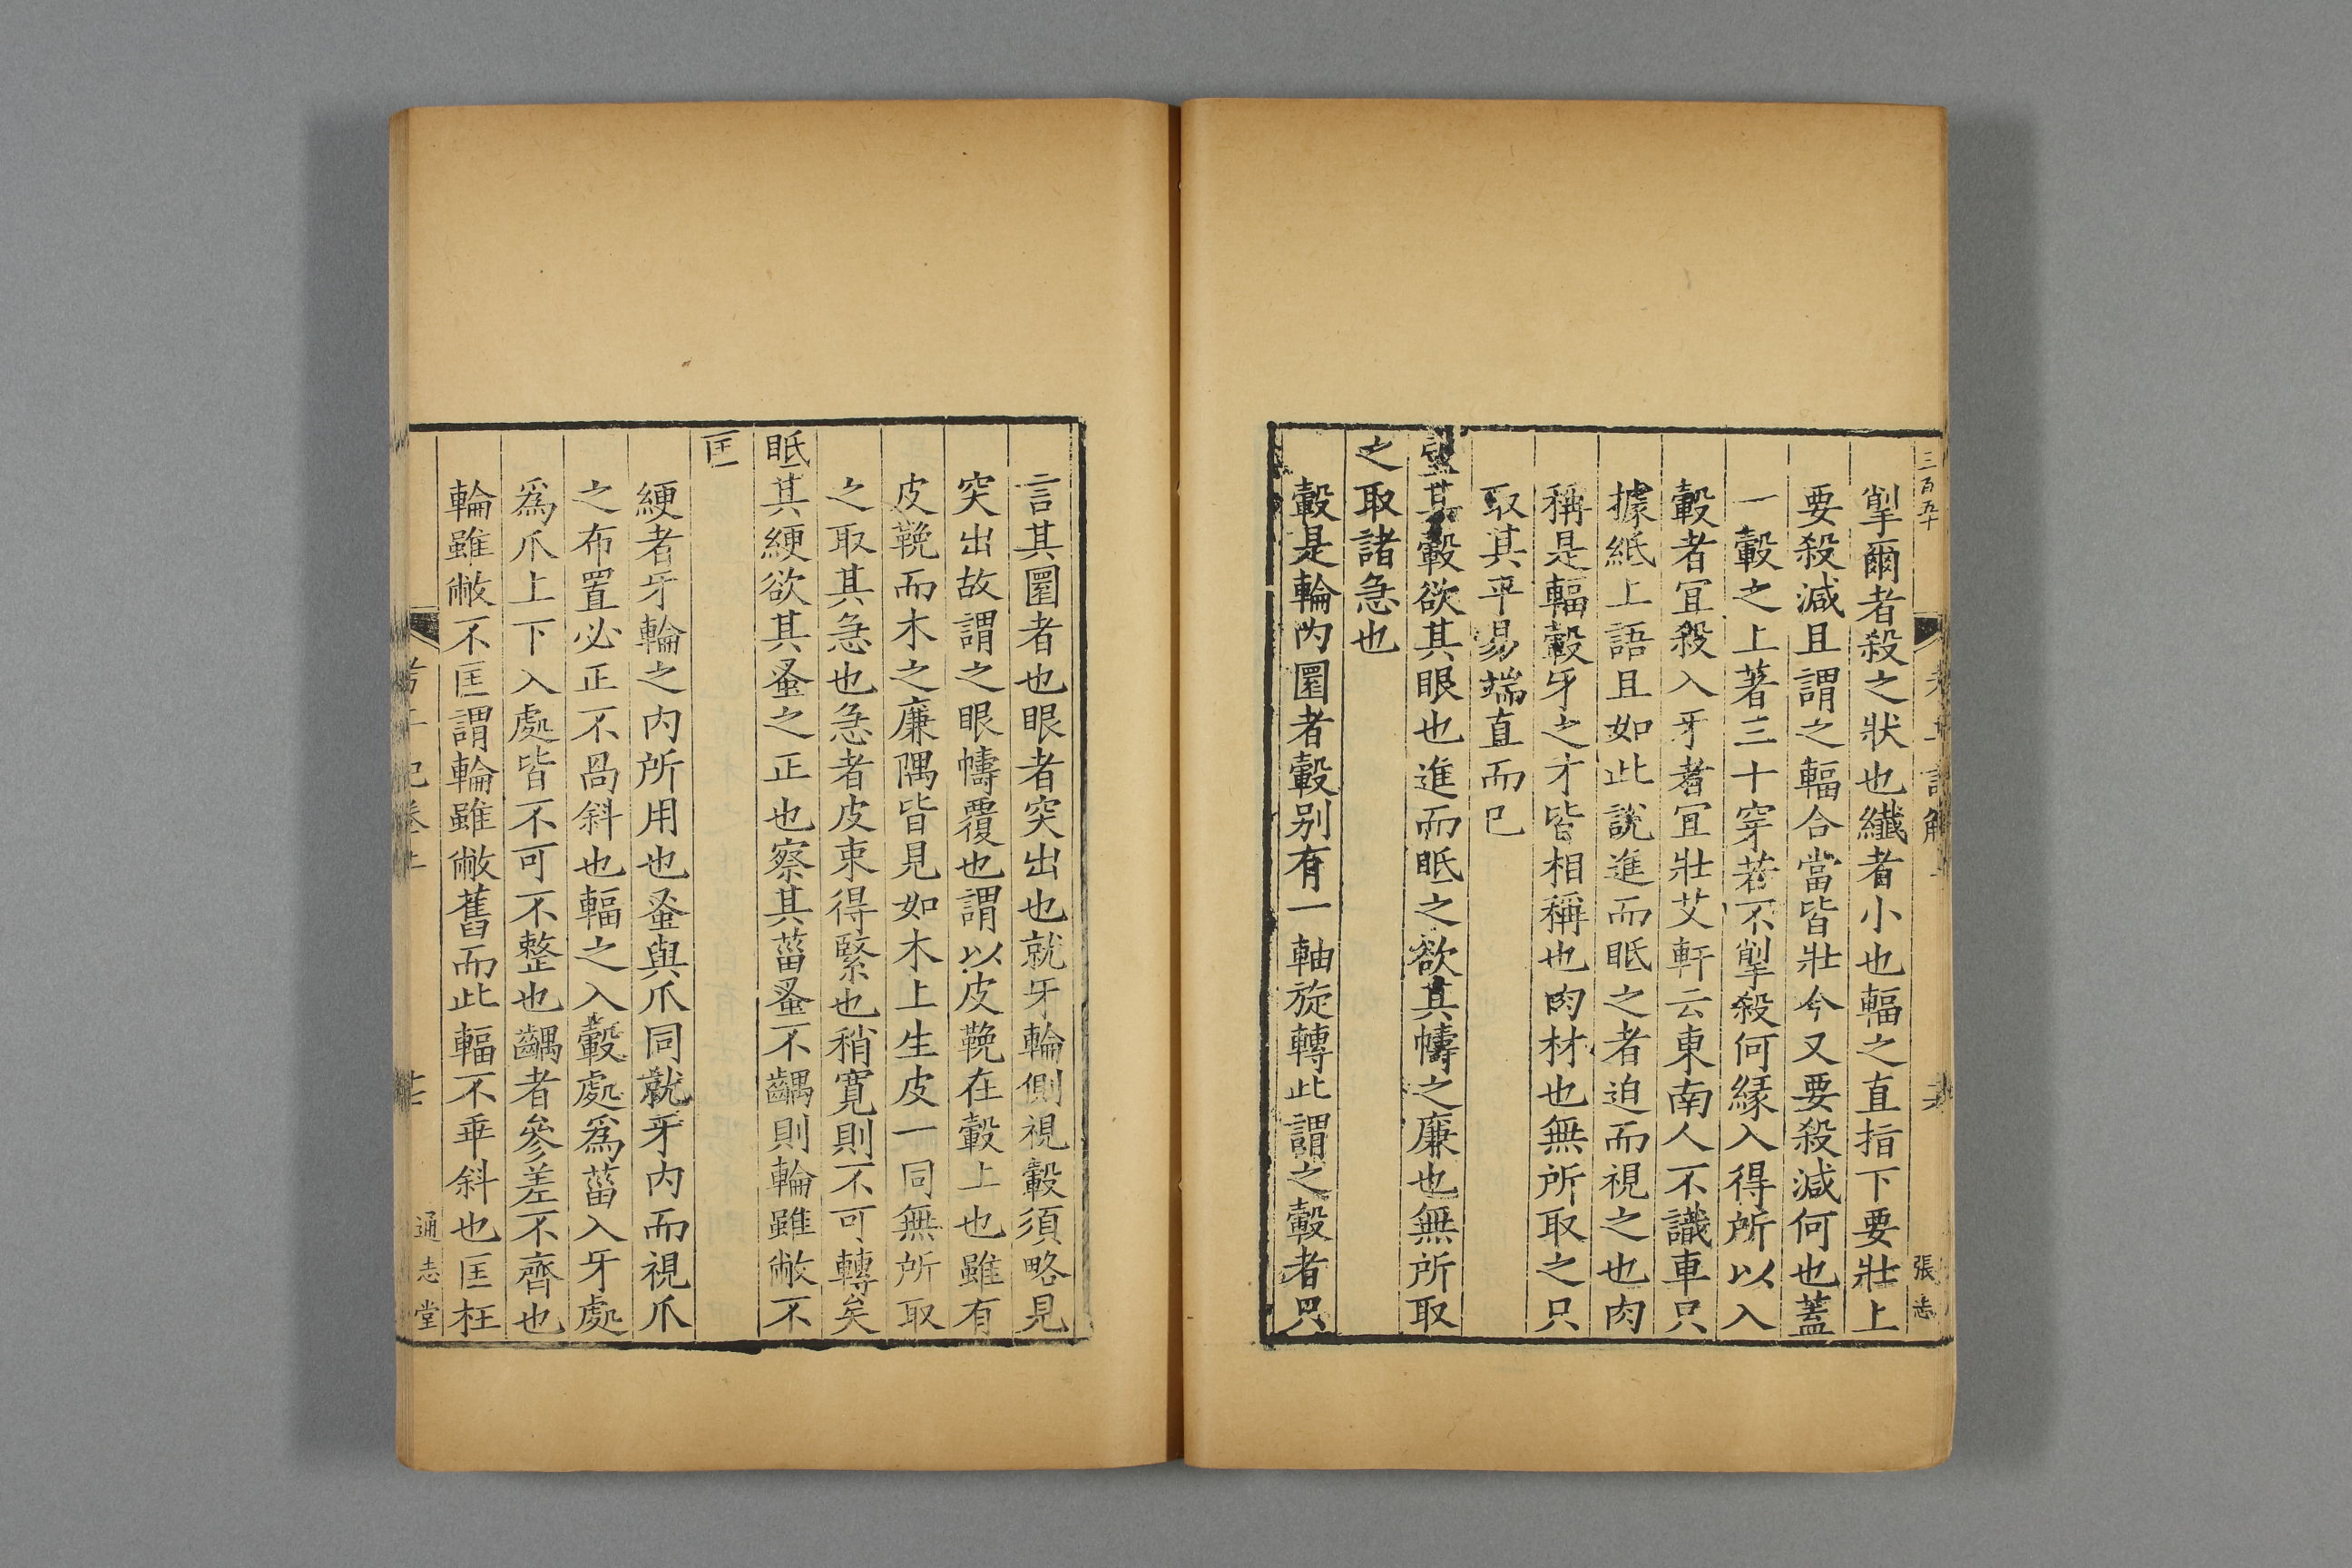 三百五十
張志
揱爾者殺之狀也纎者小也輻之直指下要壯上
要殺減且謂之輻合當皆壯今又要殺減何也蓋
一轂之上著三十穿若不揱殺何緣入得所以入
轂者冝殺入牙者冝壯艾軒云東南人不識車只
據紙上語且如此說進而眡之者迫而視之也肉
稱是輻轂牙之才皆相稱也肉材也無所取之只
取其平易端直而已
望其轂欲其眼也進而眡之欲其幬之廉也無所取
之取諸急也
轂是輪內圜者轂别有一軸旋轉此謂之轂者只
言其圜者也眼者突出也就牙輪側視轂須略見
突出故謂之眼幬覆也謂以皮鞔在轂上也雖有
皮鞔而木之廉隅皆見如木上生皮一同無所取
之取其急也急者皮束得緊也稍寬則不可轉矣
眡其綆欲其蚤之正也察其菑蚤不齵則輪雖敝不
匡
綆者牙輪之內所用也蚤與爪同就牙內而視爪
之布置必正不咼斜也輻之入轂處爲菑入牙處
爲爪上下入處皆不可不整也齵者參差不齊也
輪雖敝不匡謂輪雖敝舊而此輻不乖斜也匡枉
通志堂